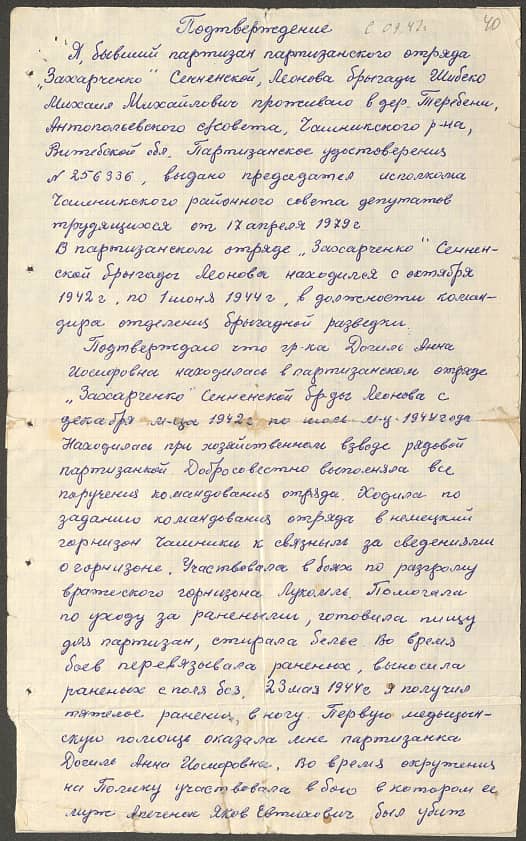 Подтверждение
с 09.42г.
40
Я, бывший партизан партизанского отряда
„Захарченко" Сенненской, Леонова брыгады Шибеко
Михаил Михайлович проживаю в дер. Теребени,
Антопольевского с/совета, Чашникского р-на,
Витебской обл. Партизанское удостоверения
N 256936, выдано председател исполкома
Чашникского районного совета депутатов
трудящихся от 17 апреля 1979 г
В партизанском отряде „Захарченко" Сеннен-
ской брыгады Леонова находился с октября
1942 г, по 1 июня 1944 г, в должности коман-
дира отделения брыгадной разведки.
Подтверждаю что гр-ка Догиль Анна
Иосифовна находилась в партизанском отряде
„Захарченко" Сенненской бр-ды Леонова с
декабря м-ца 1942 г по июль м-ц 1944 года
Находилась при хозяйственном взводе рядовой
партизанкой Добросовестно выполняла все
поручения командования отряда. Ходила по
заданию командования отряда в немецкий
горнизон Чашники к связным за сведениями
о горнизоне. Участвовала в боях по разгрому
вражеского горнизона Лукомль. Помогала
по уходу за ранеными, готовила пищу
для партизан, стирала белье. Во время
боев перевязывала раненых, выносила
раненых с поля боя. 23 мая 1944 г я получил
тяжелое ранения в ногу. Первую медыцын-
скую помощь оказала мне партизанка
Догиль Анна Иосифовна. Во время окружения
на Полику участвовала в бою в котором ее
муж Апеченок Яков Евтихович был убит